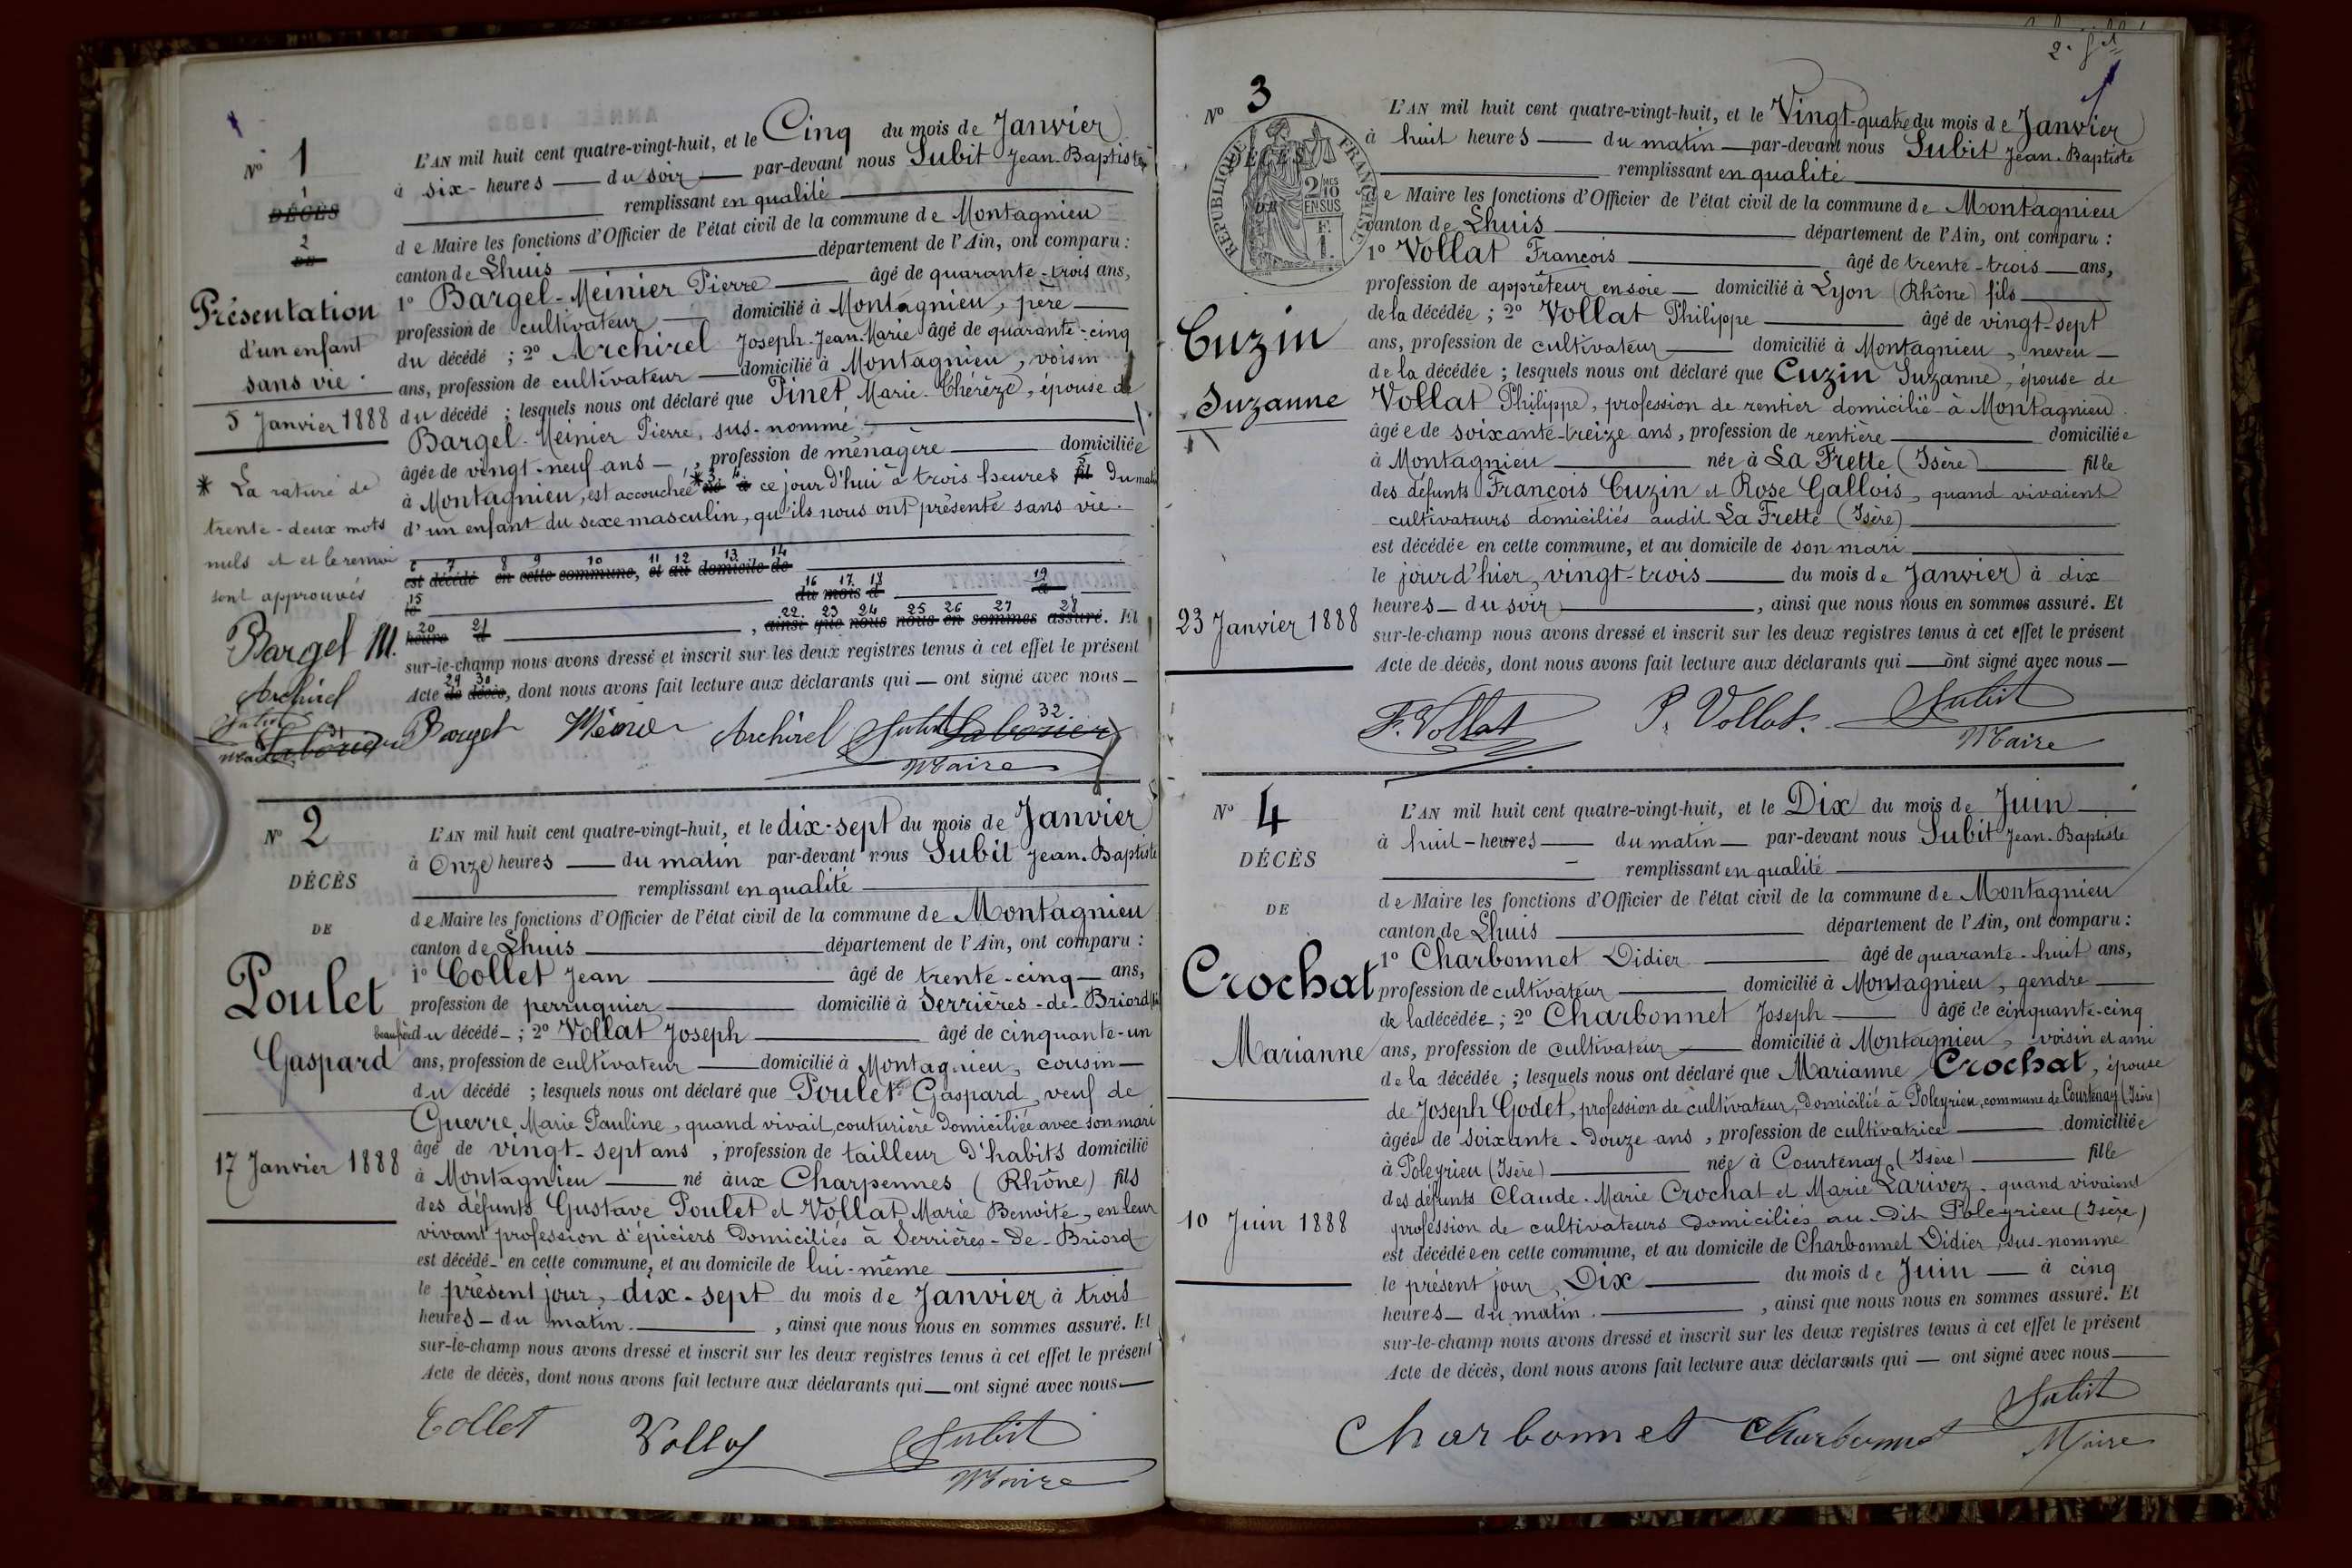 Nº 1
1
DÉCÈS
2
DE
Présentation
d'un enfant
sans vie.
5 Janvier 1888
* La rature de
trente-deux mots
nuls et et le renvoi
sont approuvés
Bargel M.
Archirel
Subit
31
L'AN mil huit cent quatre-vingt-huit, et le Cinq du mois de Janvier
à six heures du soir par-devant nous Subit Jean-Baptiste
remplissant en qualité
de Maire les fonctions d'Officier de l'état civil de la commune de Montagnieu
canton de Lhuis département de l'Ain, ont comparu :
1º Bargel-Meinier Pierre âgé de quarante-trois ans,
profession de cultivateur domicilié à Montagnieu, père
du décédé ; 2º Archirel Joseph-Jean-Marie âgé de quarante-cinq
ans, profession de cultivateur domicilié à Montagnieu, voisin
du décédé ; lesquels nous ont déclaré que Pinet Marie-Thérèze, épouse de
Bargel-Meinier Pierre, sus-nommé
âgée de vingt-neuf ans, profession de ménagère domiciliée
à Montagnieu, est accouchée * 3 né 4 à ce jour d'hui à trois heures 5 fil du matin
d'un enfant du sexe masculin, qu'ils nous ont présenté sans vie.
6 7 8 9 10 11 12 13 14
est décédé en cette commune, et au domicile de
15 16 17 18 19
le du mois d à
20 21 22 23 24 25 26 27 28
heure d , ainsi que nous nous en sommes assuré. Et
sur-le-champ nous avons dressé et inscrit sur les deux registres tenus à cet effet le présent
29 30
Acte de décès, dont nous avons fait lecture aux déclarants qui ont signé avec nous
Bargel Archirel Subit 32
Maire
Nº 2
DÉCÈS
DE
Poulet
Gaspard
17 Janvier 1888
L'AN mil huit cent quatre-vingt-huit, et le dix-sept du mois de Janvier
à Onze heures du matin par-devant nous Subit Jean-Baptiste
remplissant en qualité
de Maire les fonctions d'Officier de l'état civil de la commune de Montagnieu
canton de Lhuis département de l'Ain, ont comparu :
1º Collet Jean âgé de trente-cinq ans,
profession de perruquier domicilié à Serrières-de-Briord
beau frère du décédé ; 2º Vollat Joseph âgé de cinquante-un
ans, profession de cultivateur domicilié à Montagnieu, cousin
du décédé ; lesquels nous ont déclaré que Poulet Gaspard, veuf de
Guerre Marie Pauline, quand vivait, couturière domiciliée avec son mari
âgé de vingt-sept ans, profession de tailleur d'habits domicilié
à Montagnieu né aux Charpennes (Rhône) fils
des défunts Gustave Poulet et Vollat Marie Benoite, en leur
vivant profession d'épiciers domiciliés à Serrières-de-Briord
est décédé en cette commune, et au domicile de lui-même
le présent jour, dix-sept du mois de Janvier à trois
heures du matin. , ainsi que nous nous en sommes assuré. Et
sur-le-champ nous avons dressé et inscrit sur les deux registres tenus à cet effet le présent
Acte de décès, dont nous avons fait lecture aux déclarants qui ont signé avec nous
Collet Vollat Subit
Maire
Nº 3
RÉPUBLIQUE FRANÇAISE
2/10 EN SUS
F. 1.
DÉCÈS
DE
Cuzin
Suzanne
23 Janvier 1888
L'AN mil huit cent quatre-vingt-huit, et le Vingt-quatre du mois de Janvier
à huit heures du matin par-devant nous Subit Jean-Baptiste
remplissant en qualité
de Maire les fonctions d'Officier de l'état civil de la commune de Montagnieu
canton de Lhuis département de l'Ain, ont comparu :
1º Vollat François âgé de trente-trois ans,
profession de apprêteur en soie domicilié à Lyon (Rhône) fils
de la décédée ; 2º Vollat Philippe âgé de vingt-sept
ans, profession de cultivateur domicilié à Montagnieu, neveu
de la décédée ; lesquels nous ont déclaré que Cuzin Suzanne, épouse de
Vollat Philippe, profession de rentier domicilié à Montagnieu.
âgée de soixante-treize ans, profession de rentière domiciliée
à Montagnieu née à La Frette (Isère) fille
des défunts François Cuzin et Rose Gallois, quand vivaient
cultivateurs domiciliés audit La Frette (Isère)
est décédée en cette commune, et au domicile de son mari
le jour d'hier, vingt-trois du mois de Janvier à dix
heures du soir , ainsi que nous nous en sommes assuré. Et
sur-le-champ nous avons dressé et inscrit sur les deux registres tenus à cet effet le présent
Acte de décès, dont nous avons fait lecture aux déclarants qui ont signé avec nous
F. Vollat P. Vollat. Subit
Maire
Nº 4
DÉCÈS
DE
Crochat
Marianne
10 Juin 1888
L'AN mil huit cent quatre-vingt-huit, et le Dix du mois de Juin
à huit heures du matin par-devant nous Subit Jean-Baptiste
remplissant en qualité
de Maire les fonctions d'Officier de l'état civil de la commune de Montagnieu
canton de Lhuis département de l'Ain, ont comparu :
1º Charbonnet Didier âgé de quarante-huit ans,
profession de cultivateur domicilié à Montagnieu, gendre
de la décédée ; 2º Charbonnet Joseph âgé de cinquante-cinq
ans, profession de cultivateur domicilié à Montagnieu, voisin et ami
de la décédée ; lesquels nous ont déclaré que Marianne Crochat, épouse
de Joseph Godet, profession de cultivateur, domicilié à Poleyrieu, commune de Courtenay (Isère)
âgée de soixante-douze ans, profession de cultivatrice domiciliée
à Poleyrieu (Isère) née à Courtenay (Isère) fille
des défunts Claude-Marie Crochat et Marie Larivez, quand vivaient
profession de cultivateurs domiciliés au-dit Poleyrieu (Isère)
est décédée en cette commune, et au domicile de Charbonnet Didier, sus-nommé
le présent jour, Dix du mois de Juin à cinq
heures du matin. , ainsi que nous nous en sommes assuré. Et
sur-le-champ nous avons dressé et inscrit sur les deux registres tenus à cet effet le présent
Acte de décès, dont nous avons fait lecture aux déclarants qui ont signé avec nous
Charbonnet Charbonnet Subit
Maire